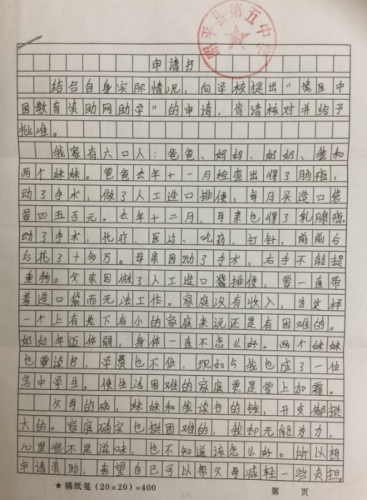 申请书
结合自身实际情况，向学校提出"情系中
国教育资助网助学"的申请，肯请核对并给予
批准。
我家有六口人：爸爸、妈妈、奶奶、我和
两个妹妹。爸爸去年十一月检查出得了肠癌，
动了手术，做了人工造口排便，每月买造口袋
要四五百元。去年十二月，母亲也得了乳腺癌，
动了手术，化疗、医治、吃药、打针，前前后
后花了十多万。母亲因动了手术，右手不能提
重物。父亲因做了人工造口袋排便，要一直带
着造口袋而无法工作。家庭没有收入，为这样
一个上有老下有小的家庭来说还是有困难的。
奶奶年迈体弱，身体一直不怎么好。两个妹妹
也要读书，学费也不低，现如今我也成了一位
高中学生。使生活困难的家庭更是雪上加霜。
父母的病，妹妹和我读书的钱，开支都挺
大的。家庭确实也挺困难的，我却无能为力，
心里很不是滋味，也不知道该怎么好。所以想
申请资助，希望自己可以帮父母减轻一些负担，
★稿纸笺（20×20）=400
第 页